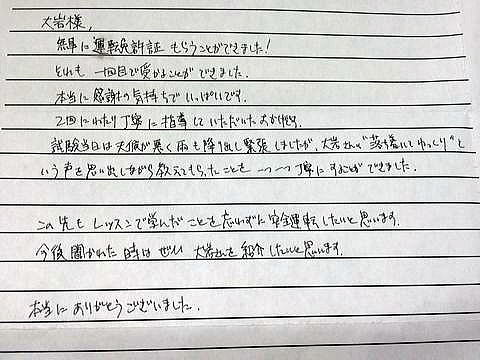 大岩様,
無事に運転免許証もらうことができました!
それも一回目で受かることができました.
本当に感謝の気持ちでいっぱいです.
2回にわたり丁寧に指導していただいたおかげです.
試験当日は天候が悪く雨も降り出し緊張しましたが、大岩さんの"落ち着いてゆっくり"と
いう声を思い出しながら教えてもらったことを一つ一つ丁寧にすることができました.
この先もレッスンで学んだことを忘れずに安全運転したいと思います.
今後聞かれた時はぜひ大岩さんを紹介したいと思います.
本当にありがとうございました.